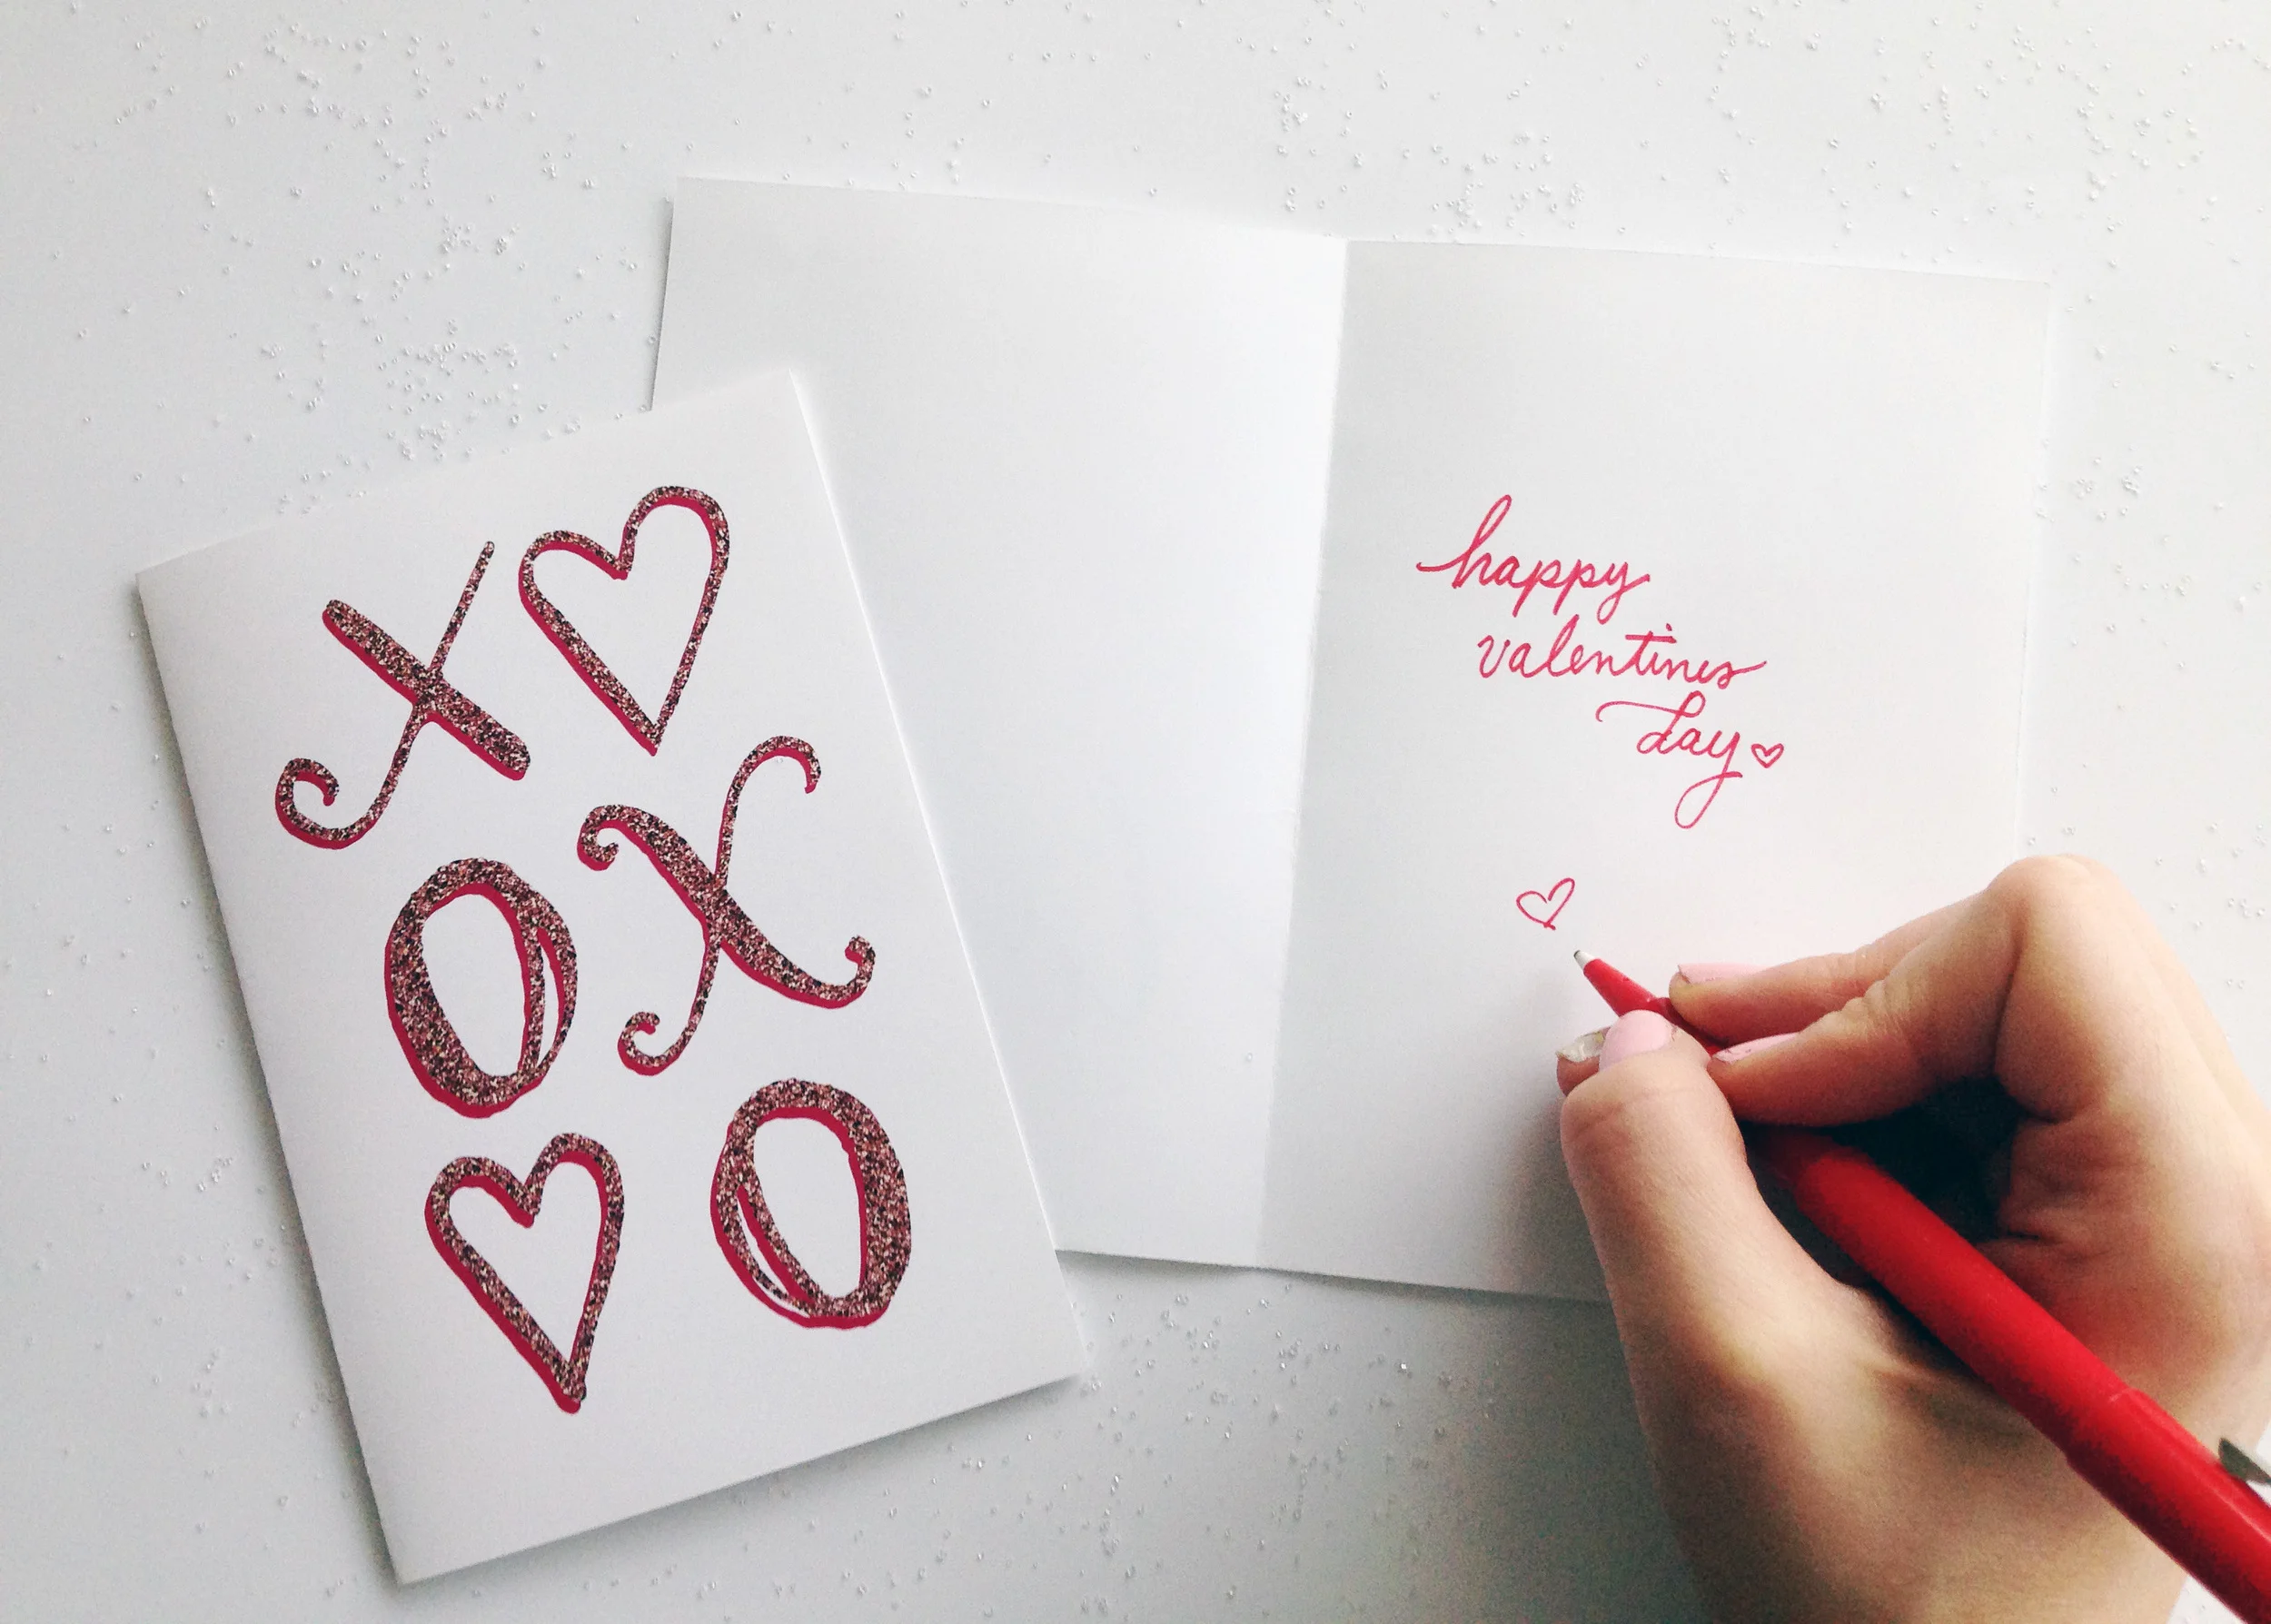 X♡
OX
♡O
happy
valentines
day♡
♡